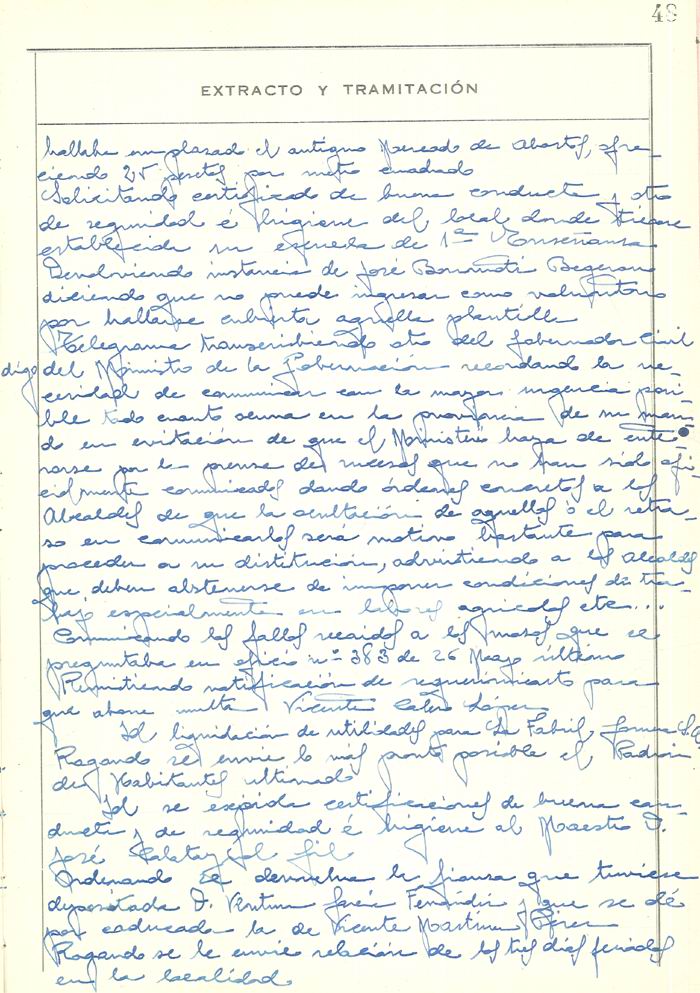 48
EXTRACTO Y TRAMITACIÓN
hallaba emplazado el antiguo Mercado de Abastos, ofre-
ciendo 25 pesetas por metro cuadrado
Solicitando certificado de buena conducta y otro
de seguridad é higiene del local donde tiene
establecida su escuela de 1ª Enseñanza
Devolviendo instancia de José Bononati
diciendo que no puede ingresar como voluntario
por hallarse cubierta aquella plantilla
Telegrama transcribiendo otro del Gobernador Civil
digo del Ministro de la Gobernación recordando la ne-
cesidad de comunicar con la mayor urgencia posi-
ble todo cuanto ocurra en la provincia de su man-
do en evitación de que el Ministerio haya de ente-
rarse por la prensa de sucesos que no han sido ofi-
cialmente comunicados dando órdenes concretas a los
Alcaldes de que la ocultación de aquellos ó el retra-
so en comunicarlos será motivo bastante para
proceder a su distitución, advirtiendo a los Alcaldes
que deben abstenerse de imponer condiciones de tra-
bajo especialmente en labores agricolas etc...
Comunicando los fallos recaidos a los mozos que se
preguntaba en oficio nº 383 de 26 Mayo último
Remitiendo notificación de requerimiento para
que abone multa Vicente Calero López
Id liquidación de utilidades para La Fabril,
Rogando se envie lo más pronto posible el Padrón
de Habitantes ultimado
Id se expida certificaciones de buena con-
ducta y de seguridad é higiene al Maestro D.
José Calatayud Gil
Ordenando se devuelva la fianza que tuviese
depositada D. Ventura García Fernández y que se dé
por caducada la de Vicente Martínez Pérez
Rogando se le envie relación de los tres dias feriados
en la localidad